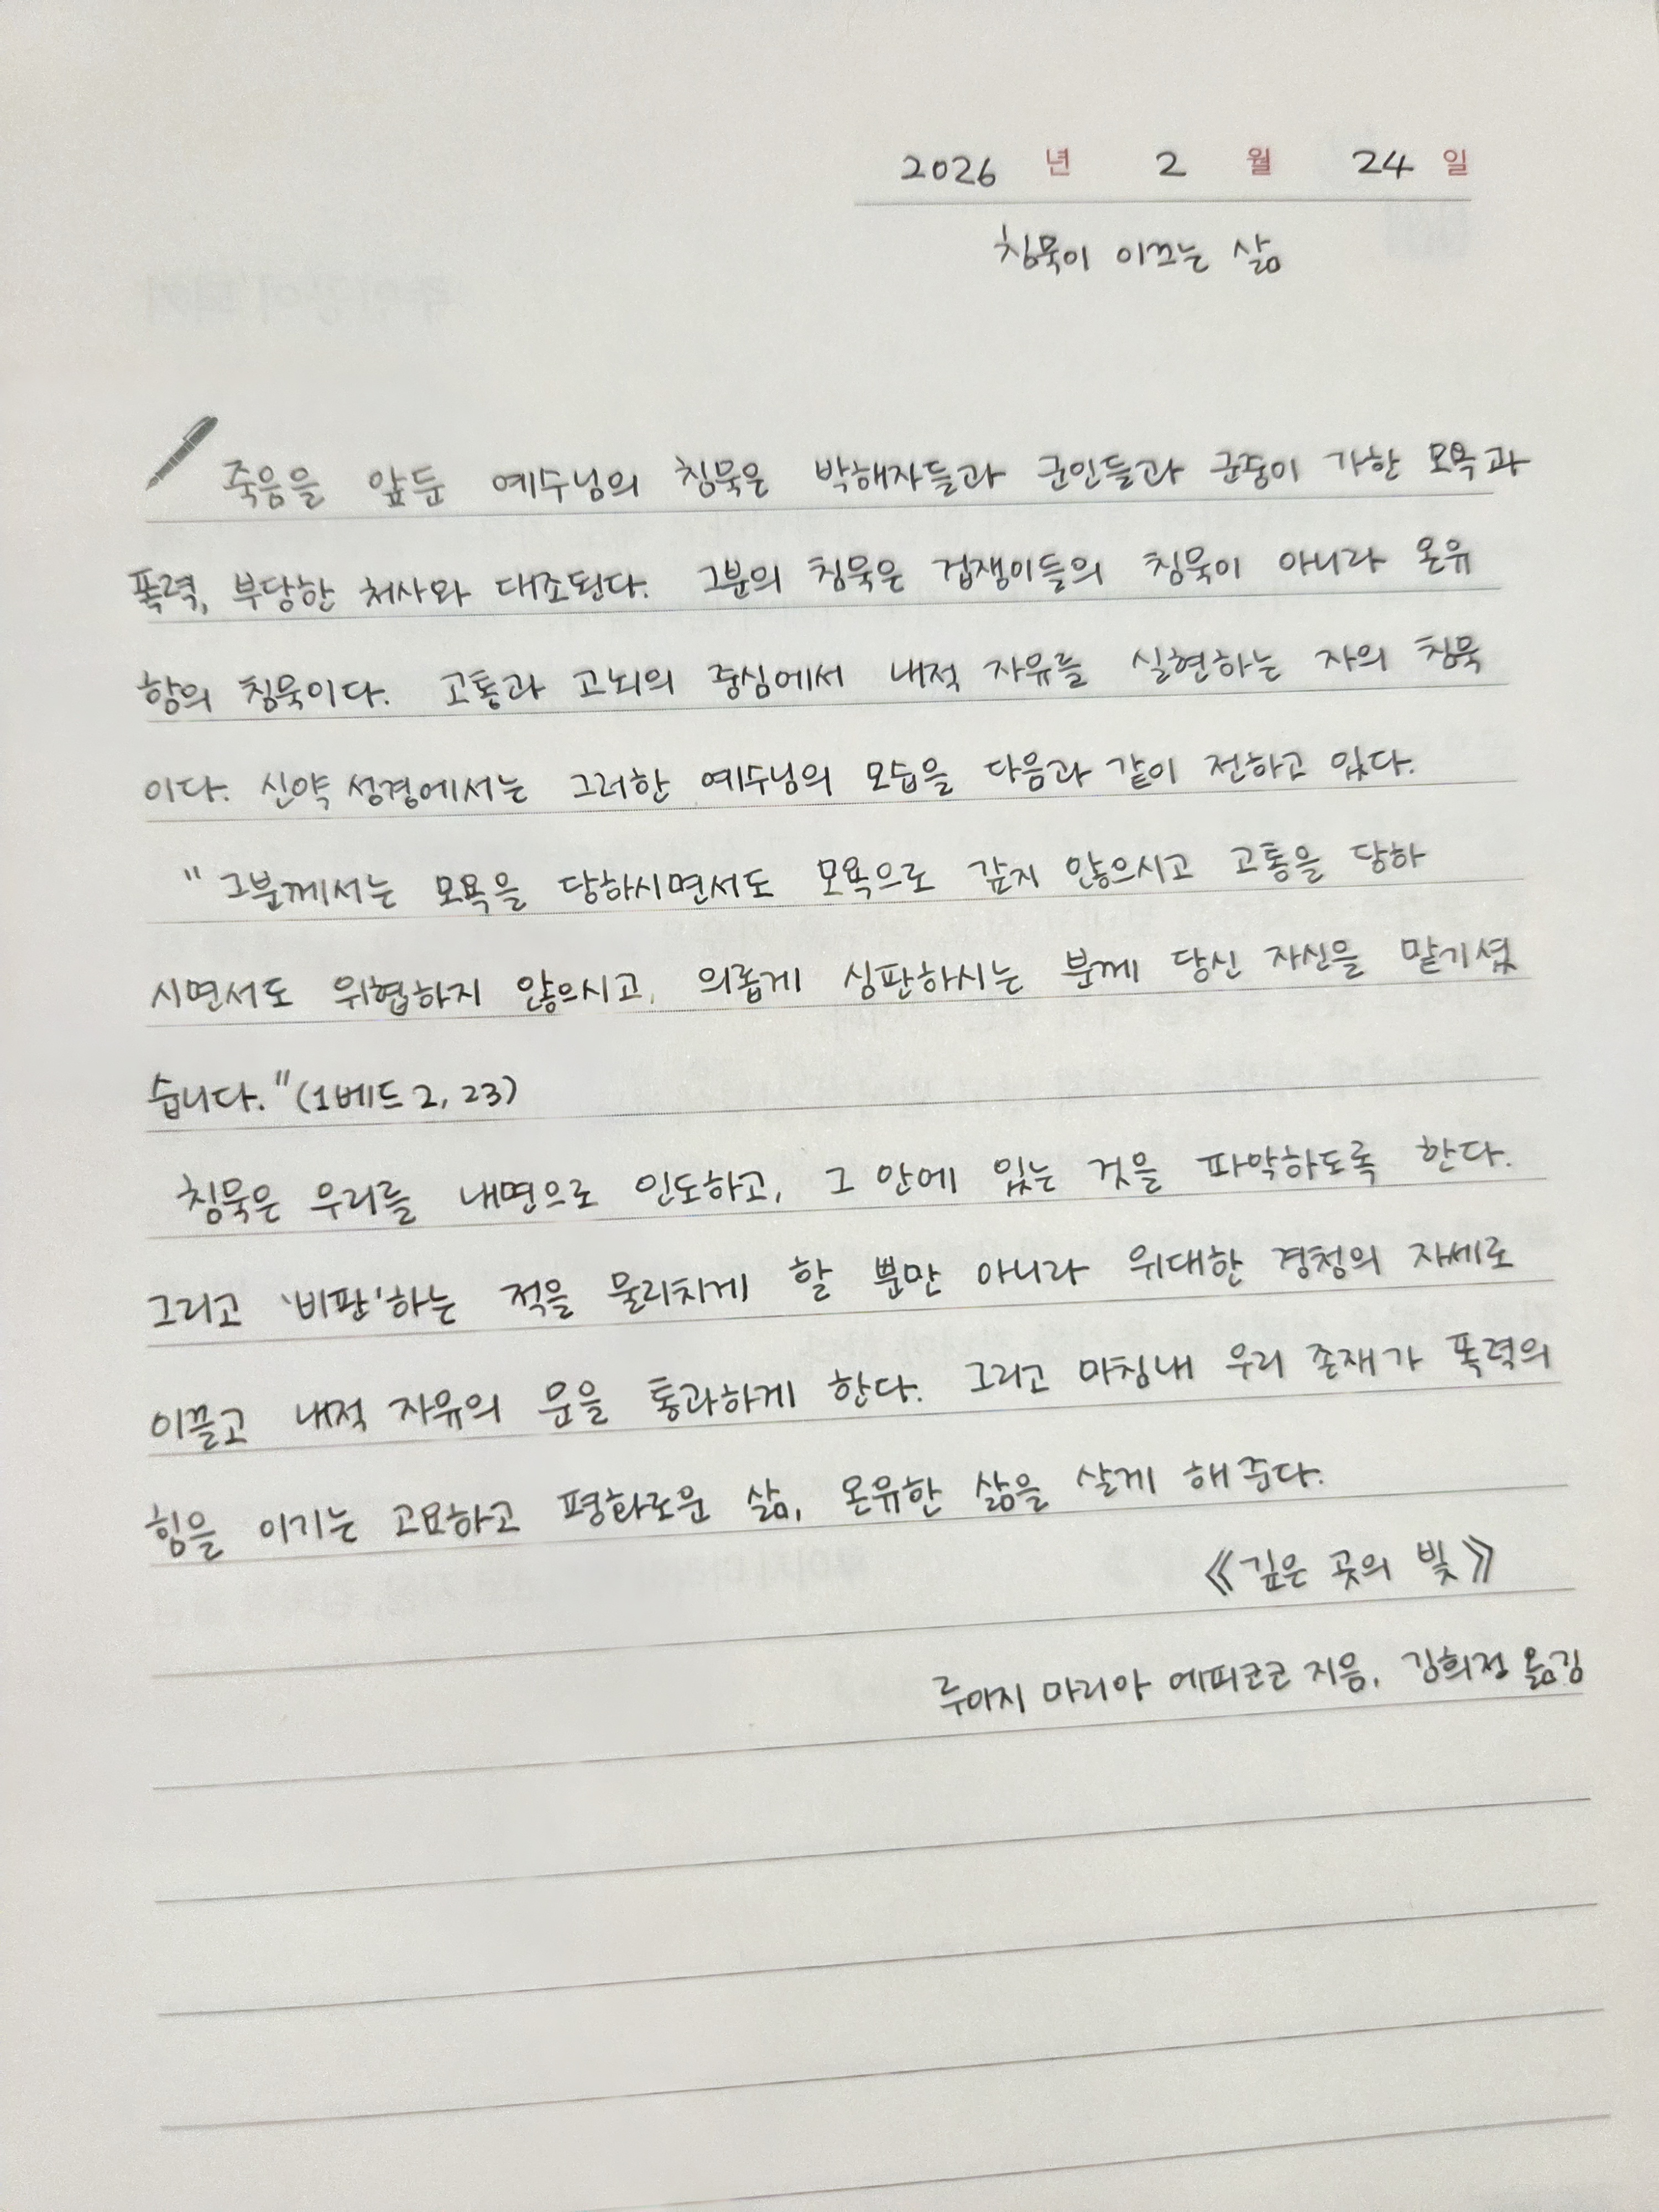 2026 년 2 월 24 일
침묵이 이끄는 삶
죽음을 앞둔 예수님의 침묵은 박해자들과 군인들과 군중이 가한 모욕과
폭력, 부당한 처사와 대조된다. 그분의 침묵은 겁쟁이들의 침묵이 아니라 온유
함의 침묵이다. 고통과 고뇌의 중심에서 내적 자유를 실현하는 자의 침묵
이다. 신약 성경에서는 그러한 예수님의 모습을 다음과 같이 전하고 있다.
"그분께서는 모욕을 당하시면서도 모욕으로 갚지 않으시고 고통을 당하
시면서도 위협하지 않으시고, 의롭게 심판하시는 분께 당신 자신을 맡기셨
습니다."(1베드 2, 23)
침묵은 우리를 내면으로 인도하고, 그 안에 있는 것을 파악하도록 한다.
그리고 '비판'하는 적을 물리치게 할 뿐만 아니라 위대한 경청의 자세로
이끌고 내적 자유의 문을 통과하게 한다. 그리고 마침내 우리 존재가 폭력의
힘을 이기는 고요하고 평화로운 삶, 온유한 삶을 살게 해준다.
《깊은 곳의 빛》
루이지 마리아 에피코코 지음, 김희정 옮김